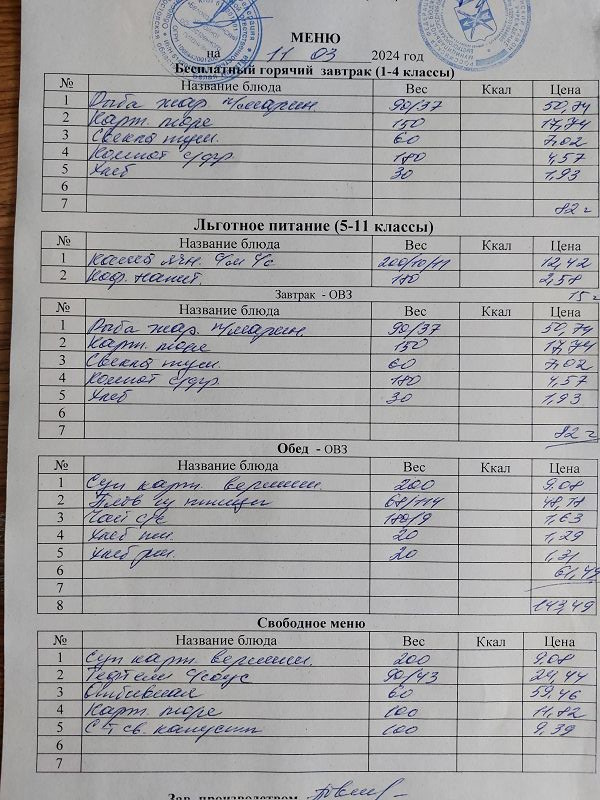 МЕНЮ
на 11 03 2024 год
Бесплатный горячий завтрак (1-4 классы)
№ Название блюда Вес Ккал Цена
1 Рыба жар. п/марин 90/37 50,74
2 Карт. пюре 150 17,74
3 Свекла туш. 60 7,02
4 Компот с/фр 180 4,57
5 Хлеб 30 1,93
6
7 82
Льготное питание (5-11 классы)
№ Название блюда Вес Ккал Цена
1 Каша 200/10/11 12,42
2 Коф. напит. 180 2,58
Завтрак - ОВЗ 15
№ Название блюда Вес Ккал Цена
1 Рыба жар. п/марин. 90/37 50,74
2 Карт. пюре 150 17,74
3 Свекла туш. 60 7,02
4 Компот с/фр 180 4,57
5 Хлеб 30 1,93
6
7 82
Обед - ОВЗ
№ Название блюда Вес Ккал Цена
1 Суп карт. вермиш. 200 9,08
2 Плов птицы 68/114 48,18
3 Чай с/с 180/9 1,63
4 Хлеб пш. 20 1,29
5 Хлеб рж. 20 1,31
6 61,49
7
8 143,49
Свободное меню
№ Название блюда Вес Ккал Цена
1 Суп карт. вермиш. 200 9,08
2 Тефтели соус 90/43 24,44
3 Отбивная 60 59,46
4 Карт. пюре 100 11,82
5 С-т св. капусты 100 9,39
6
7
Зав. производством